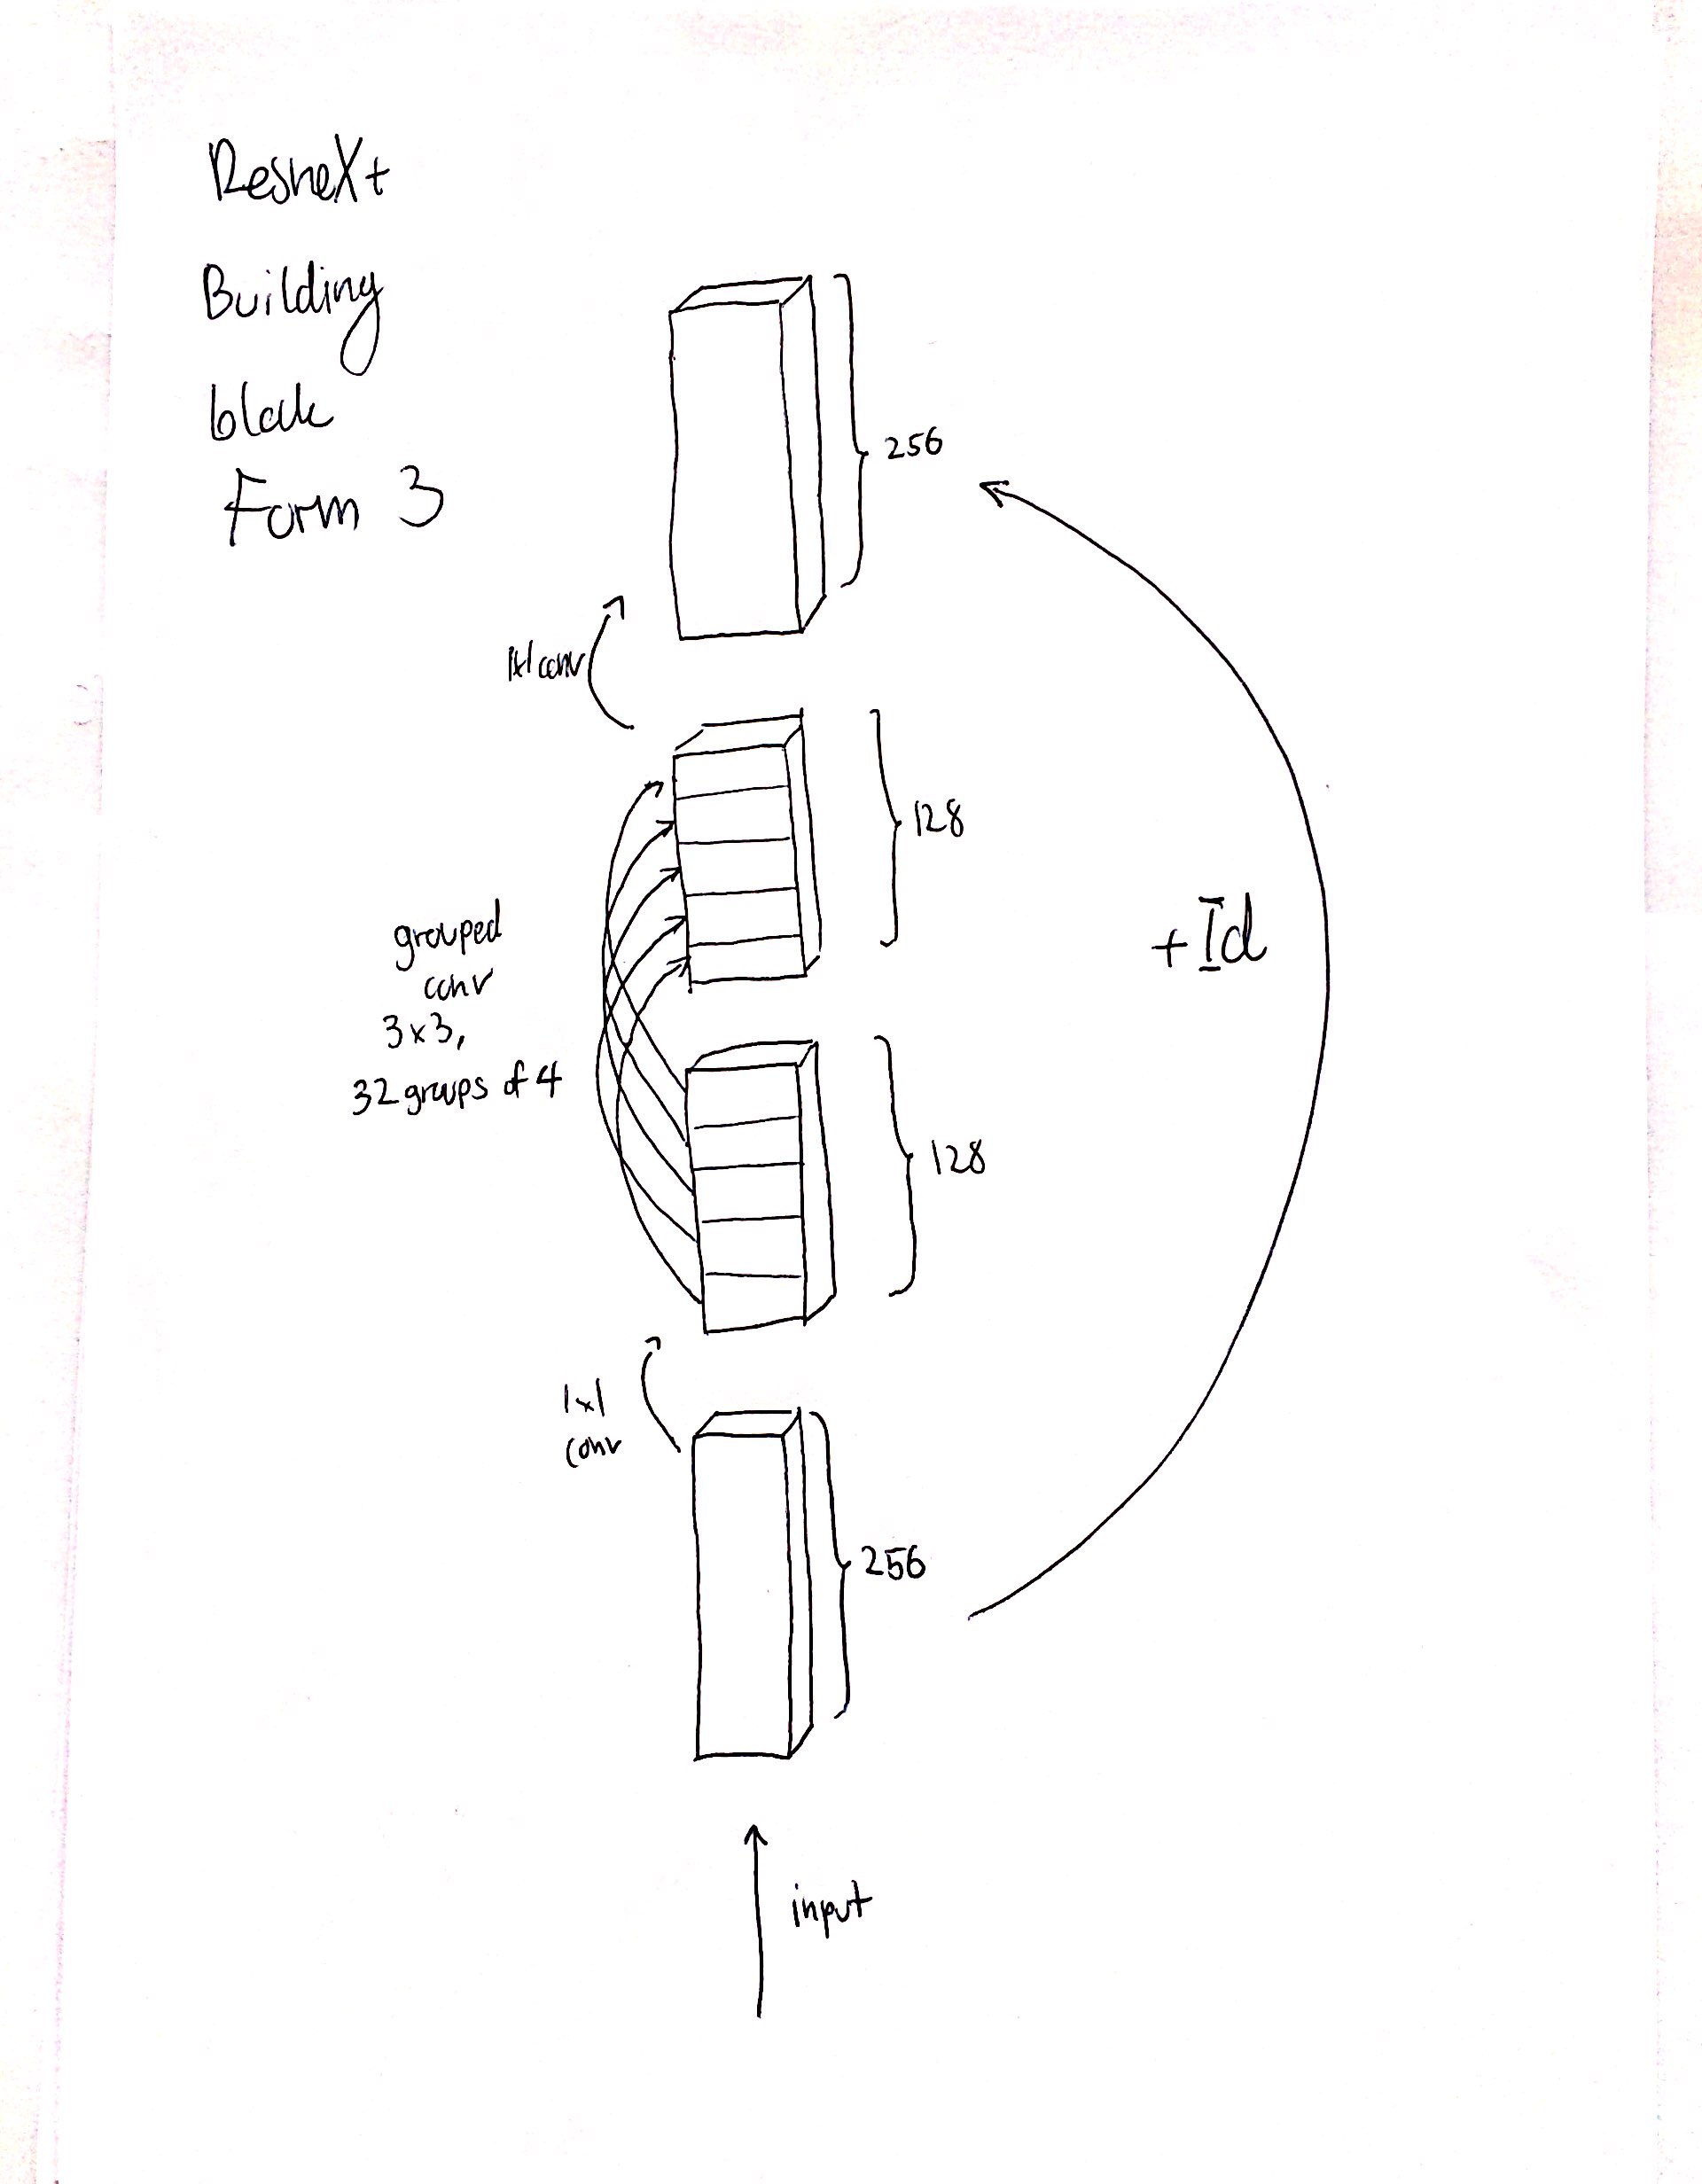 ResneXt
Building
block
Form 3
256
1x1 conv
128
grouped
conv
3x3,
32 groups of 4
+Id
128
1x1
conv
256
input